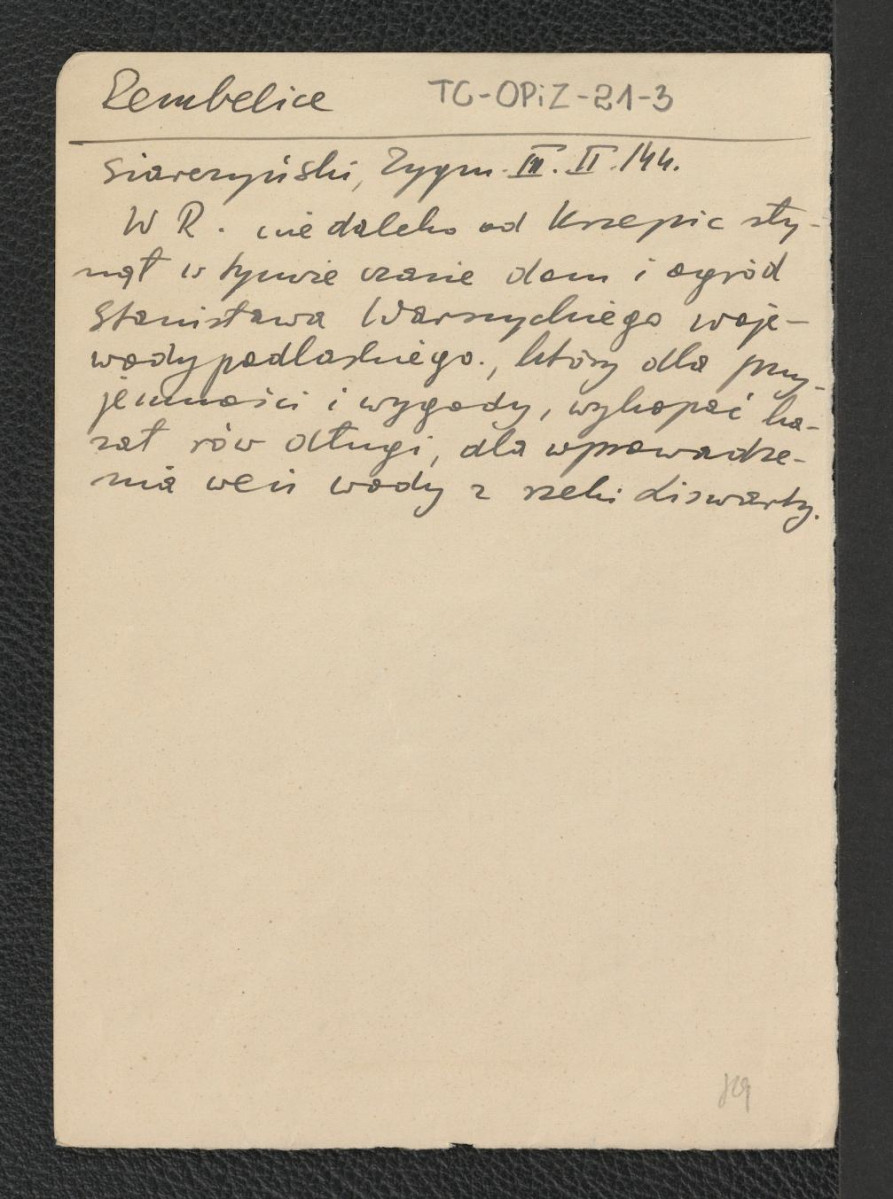 Rembelice TG-OPiZ-21-3
Siarczyński, Zygm. III. II. 144.
W R. niedaleko od Krzepic sły-
nął w tymże czasie dom i ogród
Stanisława Warszyckiego woje-
wody podlaskiego., który dla przy-
jemności i wygody, wykopać ka-
zał rów długi, dla wprowadze-
nia weń wody z rzeki Liswarty.